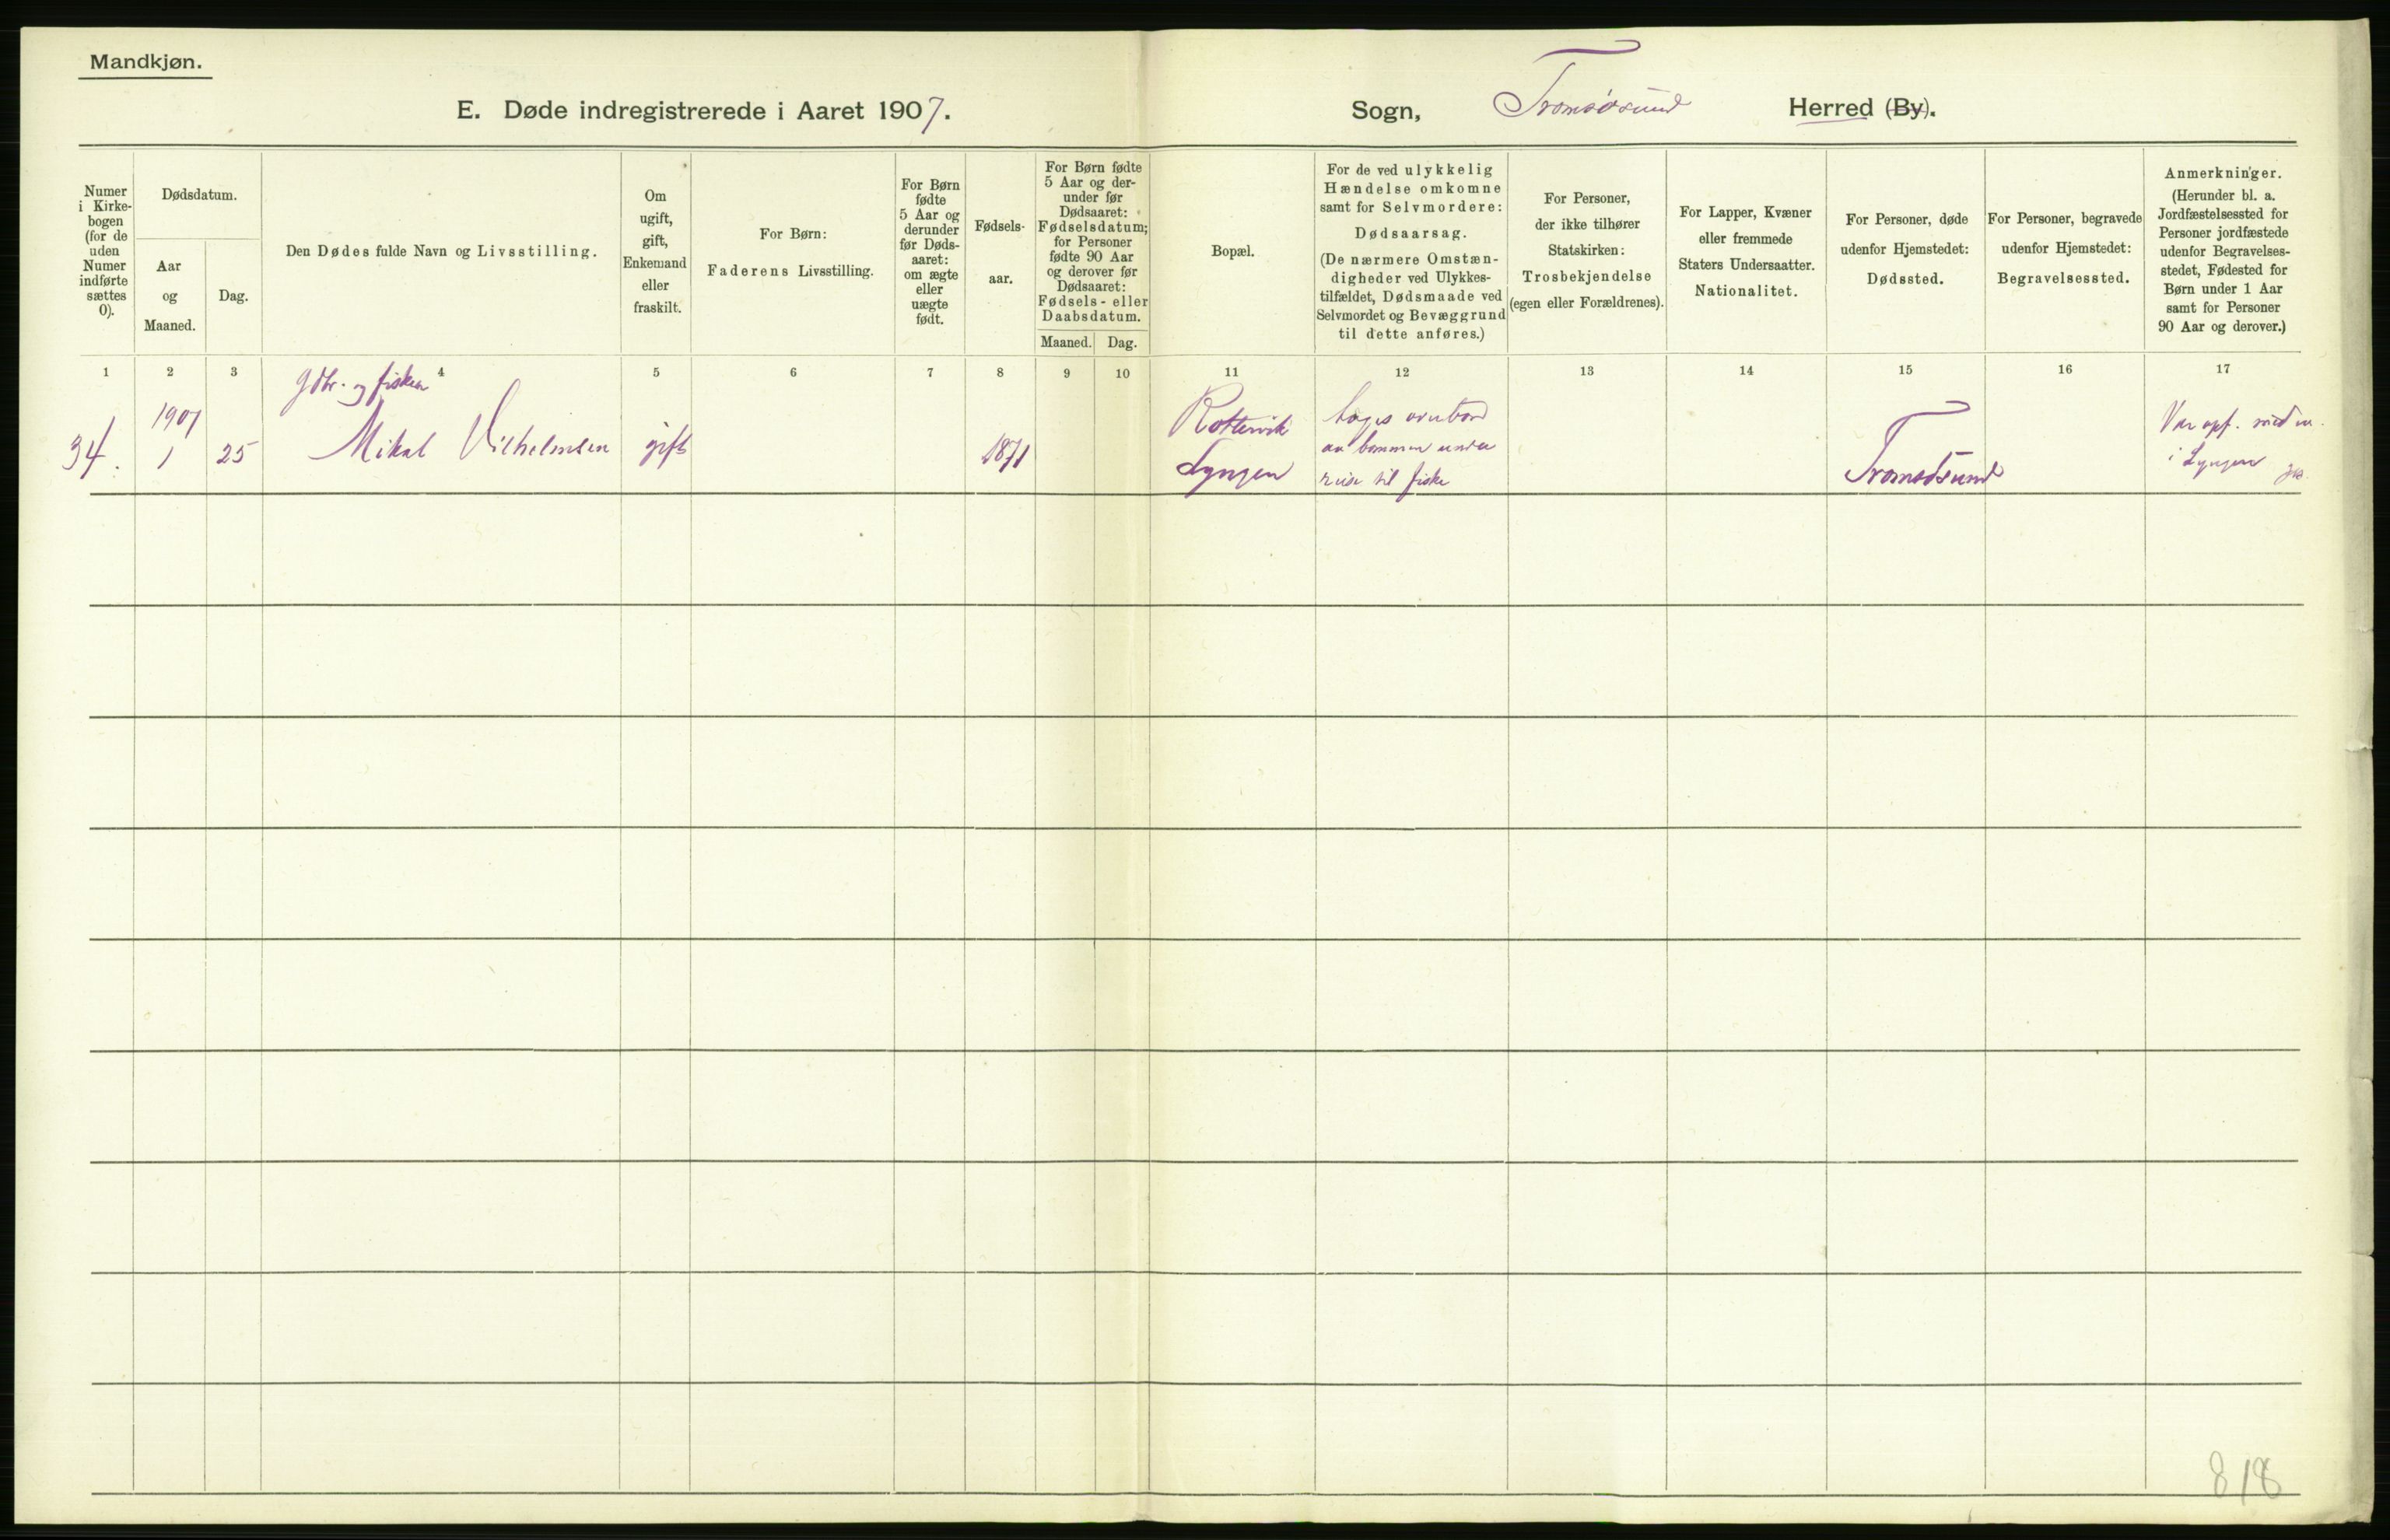 Mandkjøn.
E. Døde indregistrerede i Aaret 1907.
Sogn, Tromsøsund Herred (By).
Numer
i Kirke-
bogen
(for de
uden
Numer
indførte
sættes
0).
Dødsdatum.
Aar
og
Maaned.
Dag.
Den Dødes fulde Navn og Livsstilling.
Om
ugift,
gift,
Enkemand
eller
fraskilt.
For Børn:
Faderens Livsstilling.
For Børn
fødte
5 Aar og
derunder
før Døds-
aaret:
om ægte
eller
uægte
født.
Fødsels-
aar.
For Børn fødte
5 Aar og der-
under før
Dødsaaret:
Fødselsdatum;
for Personer
fødte 90 Aar
og derover før
Dødsaaret:
Fødsels- eller
Daabsdatum.
Maaned. Dag.
Bopæl.
For de ved ulykkelig
Hændelse omkomne
samt for Selvmordere:
Dødsaarsag.
(De nærmere Omstæn-
digheder ved Ulykkes-
tilfældet, Dødsmaade ved
Selvmordet og Bevæggrund
til dette anføres.)
For Personer,
der ikke tilhører
Statskirken:
Trosbekjendelse
(egen eller Forældrenes).
For Lapper, Kvæner
eller fremmede
Staters Undersaatter.
Nationalitet.
For Personer, døde
udenfor Hjemstedet:
Dødssted.
For Personer, begravede
udenfor Hjemstedet:
Begravelsessted.
Anmerkninger.
(Herunder bl. a.
Jordfæstelsessted for
Personer jordfæstede
udenfor Begravelses-
stedet, Fødested for
Børn under 1 Aar
samt for Personer
90 Aar og derover.)
1 2 3 4 5 6 7 8 9 10 11 12 13 14 15 16 17
34.
1907
1
25
Gbr. og fisker
Mikal Vilhelmsen
gift
1871
Rottenvik
Lyngen
toges overbord
av bommen under
reise til fiske
Tromsøsund
Var opf. med
i Lyngen
818